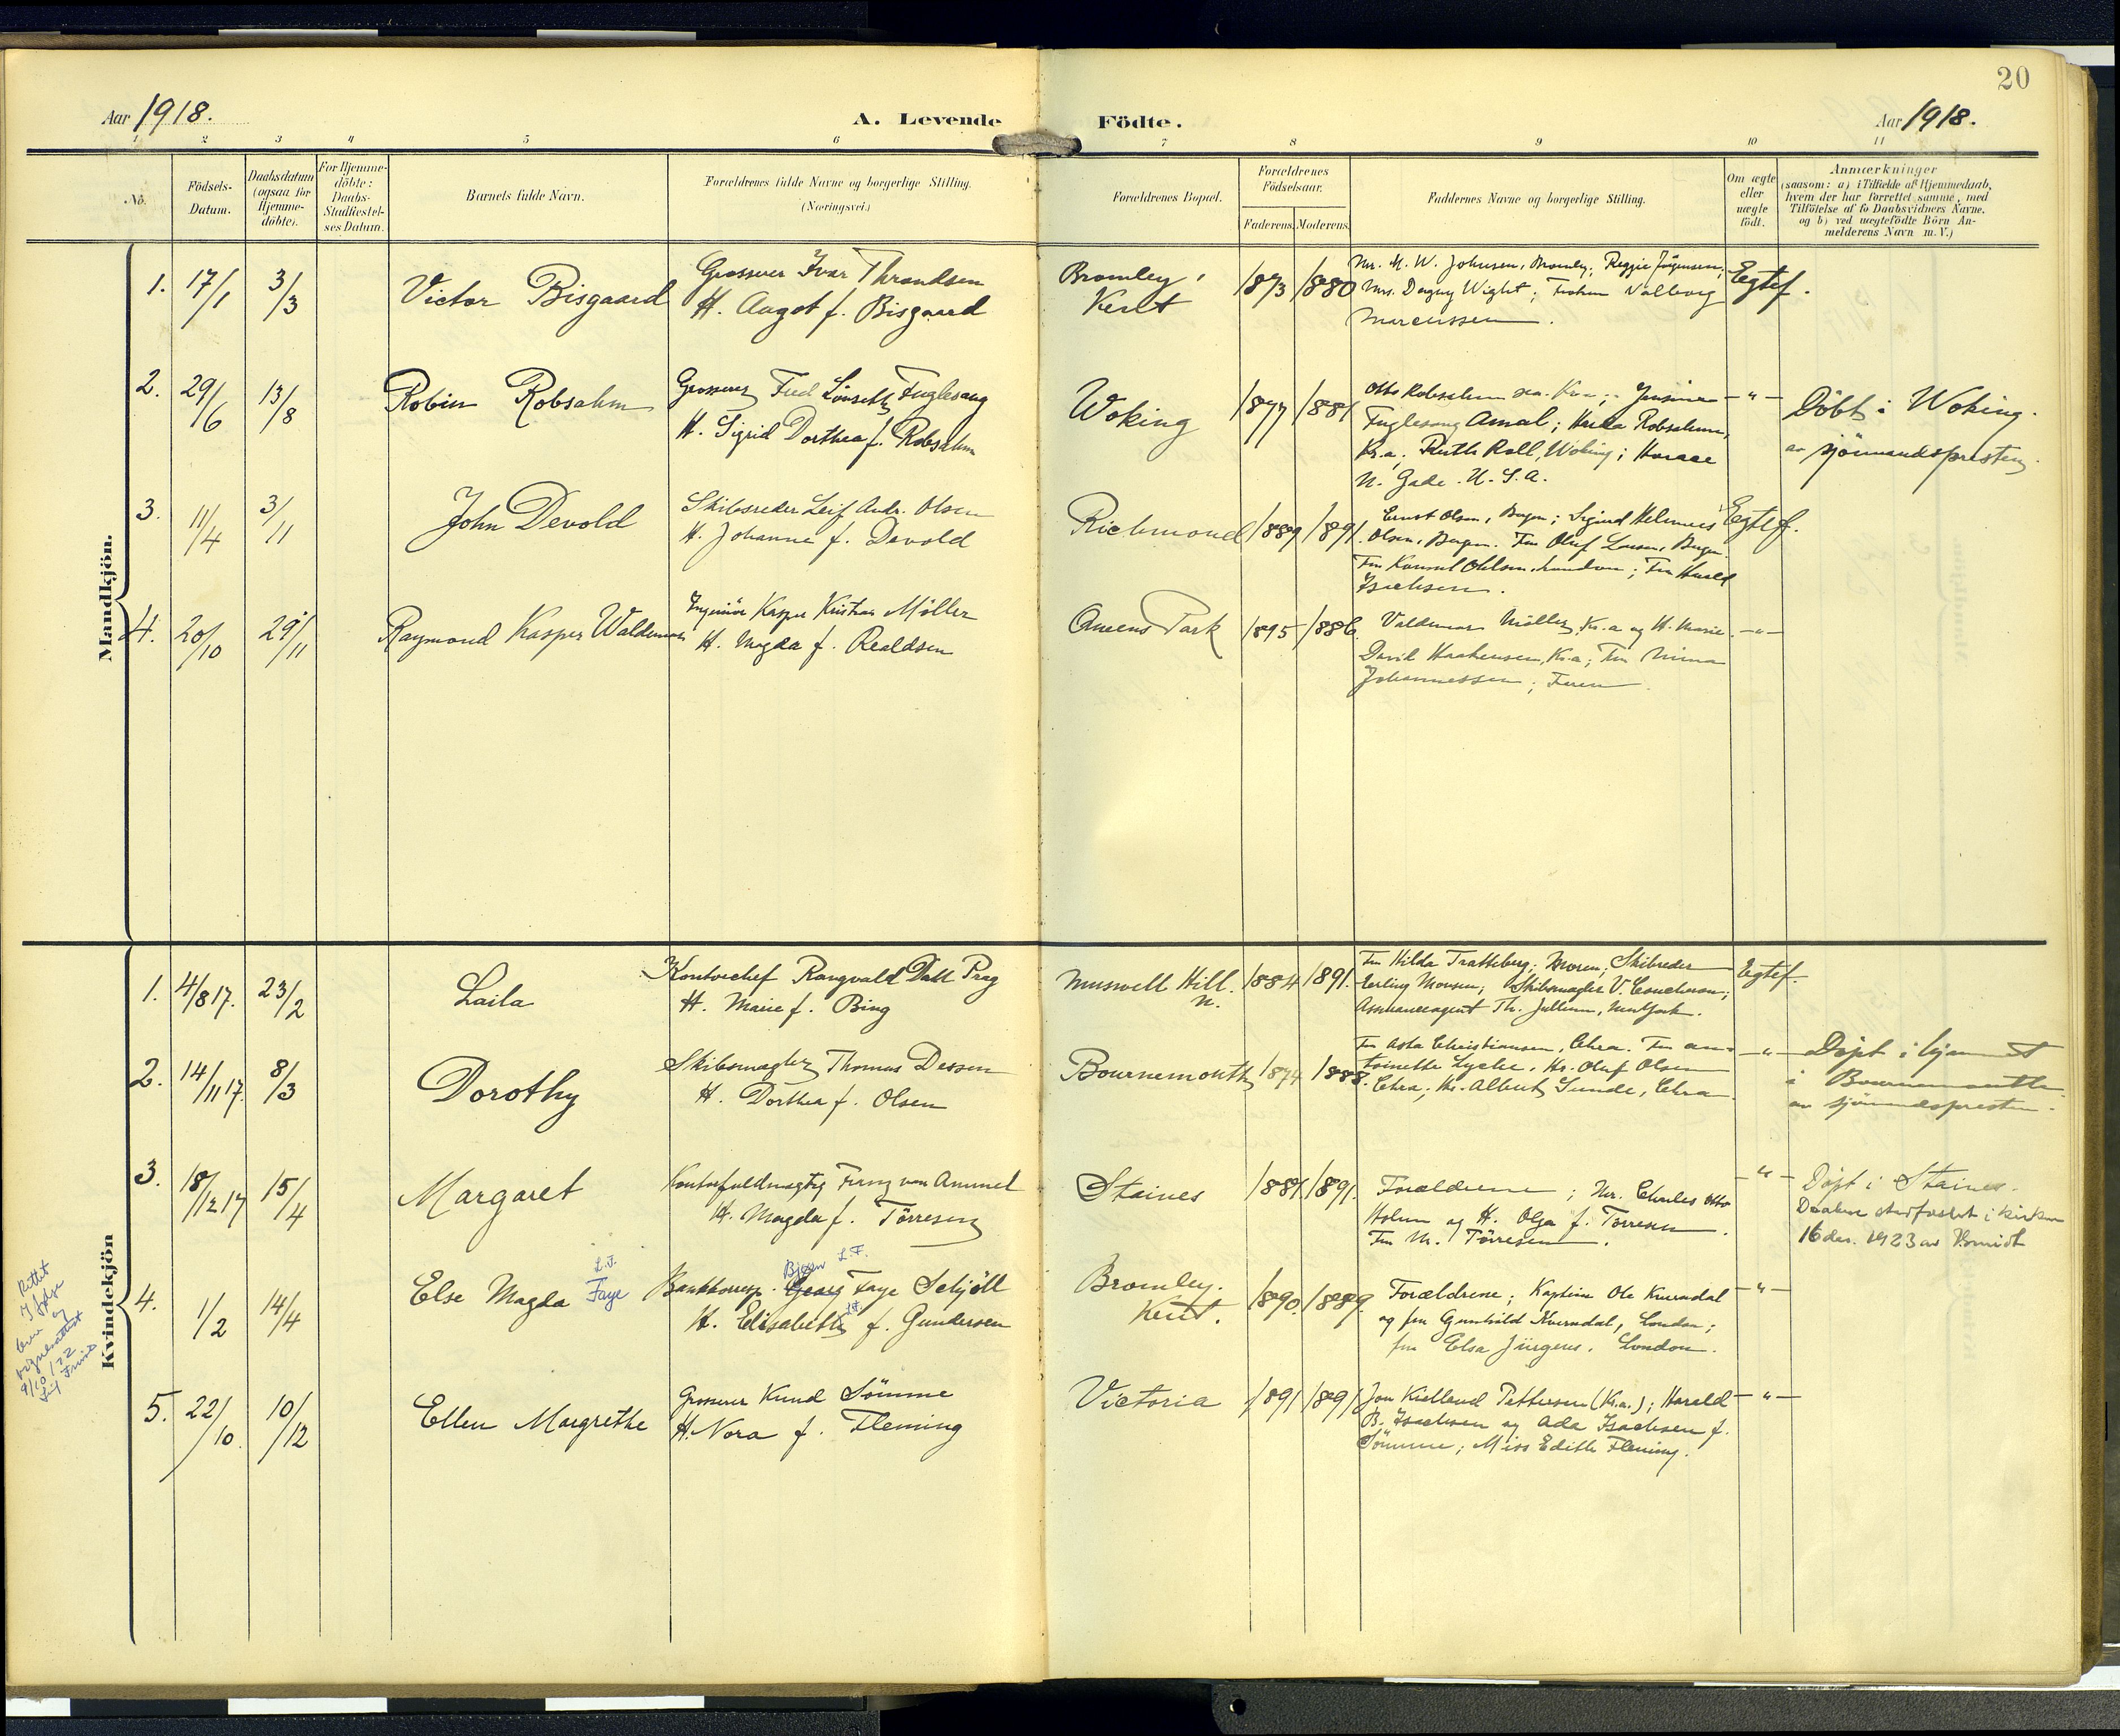 20
Aar 1918.
A. Levende Födte.
Aar 1918.
1 2 3 4 5 6 7 8 9 10 11
No.
Födsels-Datum.
Daabsdatum (ogsaa for Hjemme-döbte).
For Hjemme-döbte: Daabs-Stadfæstel-ses Datum.
Barnets fulde Navn.
Forældrenes fulde Navne og borgerlige Stilling.
(Næringsvei.)
Forældrenes Bopæl.
Forældrenes Födselsaar.
Faderens. Moderens.
Faddernes Navne og borgerlige Stilling.
Om ægte eller uægte födt.
Anmærkninger
(saasom: a) i Tilfælde af Hjemmedaab,
hvem der har forrettet samme, med
Tilföielse af to Daabsvidners Navne.
og b) ved uegtefödte Börn An-
melderens Navn m. V.)
Mandkjön.
1. 17/1 3/3 Victor Bisgaard
Grosserer Ivar Throndsen
H. Aagot f. Bisgaard
Bromley, Kent
1873 1880
Mr. M. W. Johnsen, Bromley; Reggie Jörgensen;
Mrs. Dagny Wight; Frøken Valborg
Marcussen.
Egtef.
2. 29/6 13/8 Robin Robsahm
Grosserer Fred Lövseth Fuglesang
H. Sigrid Dorthea f. Robsahm
Woking
1877 1881
Otto Robsahm sen. Kra; Jensine
Fuglesang Amal; Robsahm,
Kr.a; Ruth Roll, Woking; Horace
N. Gade. U. S. A.
- " -
Döbt i Woking.
av sjömandspresten.
3. 11/4 3/11 John Devold
Skibsreder Leif Andr. Olsen
H. Johanne f. Devold
Richmond
1889 1891.
Ernst Olsen, Bergen; Sigurd
Olsen, Bergen. Fru Oluf Larsen, Bergen
Fru Konsul Ohlson, London; Fru Harald
Isachsen.
Egtef.
4. 20/10 29/11 Raymond Kasper Waldemar
Ingeniör Kasper Kristian Möller
H. Magda f. Realdsen
Queens Park
1895 1886.
Valdemar Möller, Kr.a og H. Marie.
David Haakensen, Kr.a; Fru Minna
Johannessen;
- " -
Kvindekjön
1. 4/8 17. 23/2 Laila
Kontorchef Rangvald Dall Prag
H. Marie f. Bing
Muswell Hill. N.
1884 1891.
Fru Hilda Tratteberg; Moren; Skibsreder
Erling Monsen; Skibsmægler V. ;
Assuranceagent Th. Jullum, New York.
Egtef.
2. 14/11 17. 8/3 Dorothy
Skibsmægler Thomas Dessen
H. Dorthea f. Olsen
Bournemouth
1874 1888.
Fru Asta Christiansen, Chra. Fru An-
toinette Lyche, Hr. Oluf Olsen
Chra; Hr. Albert Sunde, Chra.
- " -
Döpt i hjemmet
i Bournemouth
av sjömandspresten.
3. 18/12 17 15/4 Margaret
Kontorfuldmægtig von Ammel
H. Magda f. Törresen
Staines
1881. 1891.
Forældrene; Mr. Charles Otto
Holum og H. Olga f. Törresen.
Fru M. Törresen.
- " -
Döpt i Staines.
Daaben stadfæstet i kirken
16 des. 1923 av
4. 1/2 14/4 Else Magda Faye L.F.
Bankbestyr. Georg Bjørn L.F. Faye Schjöll
H. Elisabeth f. Gundersen
Bromley. Kent.
1890. 1889.
Forældrene; Kaptein Ole Kverndal
og fru Gunhild Kverndal, London;
fru Elsa Jürgens, London.
- " -
Rettet
og
9/10 122
5. 22/10. 10/12 Ellen Margrethe
Grosserer Knud Sömme
H. Nora f. Fleming
Victoria
1891 1891
Jon Kielland Pettersen (Kr.a.); Harald
B. Isachsen og Ada Isachsen f.
Sömme; Miss Edith Fleming.
- " -